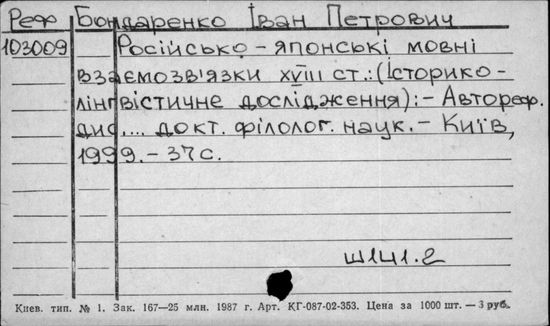 Реф Бондаренко Іван Петрович
103009 Російсько – японські мовні
взаємозв'язки XVIII ст.: (Історико –
лінгвістичне дослідження): – Автореф.
дис.... докт. філолог. наук. – Київ,
1999. – 37 с.
Ш141.2
Киев. тип. № 1. Зак. 167—25 млн. 1987 г. Арт. КГ-087-02-353. Цена за 1000 шт. — 3 руб.